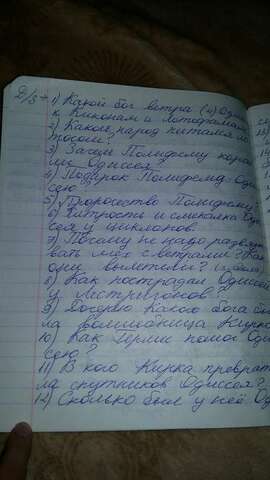 Д/з → 1) Какой бог ветра (4) Од
к Киконам и лотофагам
2) Какой народ питался ло
тосом?
3) Зачем Полифему кора
Одиссея?
4) Подарок Полифема Оди
сею?
5) Пророчество Полифему
6) Хитрость и смекалка Оди
сея у циклопов.
7) Почему не надо развязы
вать мех с ветрами? Как
они
8) Как пострадал Одиссей
у лестригонов?
9) Дочерью какого бога бы
ла волшебница Кирка
10) Как Гермес помог Оди
сею?
11) В кого Кирка преврати
ла спутников Одиссея?
12) Сколько был у неё Од